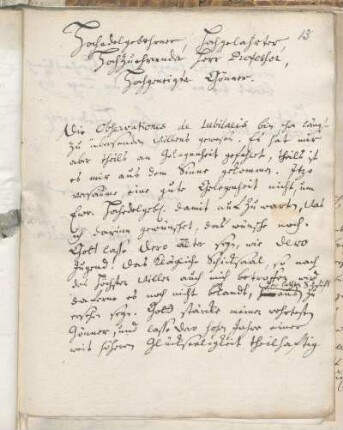 13
Hochedelgebohrner, Hochgelahrter,
Hochzuehrender Herr Professor,
Hochgeneigter Gönner.
Die Observationes de Jubilaeis bin ich längst
zu übersenden Willens gewesen. Es hat mir
aber theils an Gelegenheit gefehlet, theils ist
es mir aus dem Sinne gekommen. Itzo
versäume eine gute Gelegenheit nicht, um
Ew. Hochedelgeb. damit aufzuwarten. Was
ich darum gewünschet, das wünsche noch:
Gott lasse Dero Alter seyn, wie dero
Jugend. Das klägliche Schicksaal, so nach
des Höchsten Willen auch mich betroffen, wird
daferne es noch nicht bekandt, aus
zu
ersehen seyn. Gott stärke meinen werthesten
Gönner, und lasse der hohen Jahre einer
weit höhern Glückseeligkeit theilhaftig